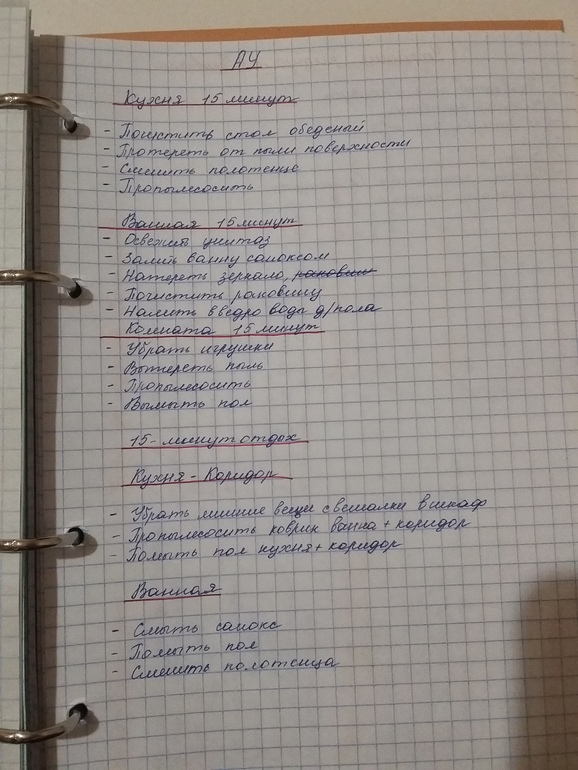 АЧ
Кухня 15 минут
- Почистить стол обеденый
- Протереть от пыли поверхности
- Сменить полотенце
- Пропылесосить
Ванная 15 минут
- Освежить унитаз
- Залить ванну саноксом
- Натереть зеркало, раковин
- Почистить раковину
- Налить в ведро воды д/пола
Комната 15 минут
- Убрать игрушки
- Вытереть пыль
- Пропылесосить
- Вымыть пол
15-минут отдых
Кухня - Коридор
- Убрать лишние вещи с вешалки в шкаф
- Пропылесосить коврик ванна + коридор
- Помыть пол кухня + коридор
Ванная
- Смыть санокс
- Помыть пол
- Сменить полотенца